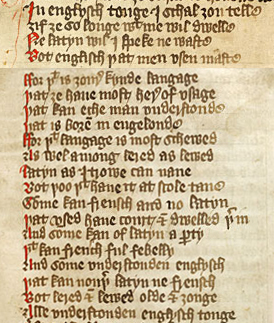 In englysch tonge I schal ȝow telle
Ȝif ȝe so longe wt me wil dwelle
Ne latyn wil I speke ne waste
Bot englysch þat men vsen maste
ffor þt is ȝour kynde langage
Þat ȝe haue most her of vsage
Þat kan eche man vnderstonde
Þat is born in engelonde
ffor þt langage is most schewed
Als wel among lered as lewed
Latyn as I trowe can nane
Bot þoo þt haue it at scole tane
Some kan frensch and no latyn
Þat vsed haue court & dwelled þr in
And some kan of latyn a pty
Þt kan frensch ful febelly
And some vnderstonden englysch
Þat kan nouþr latyn ne frensch
Bot lered & lewed olde & ȝonge
Alle vnderstonden englysch tonge